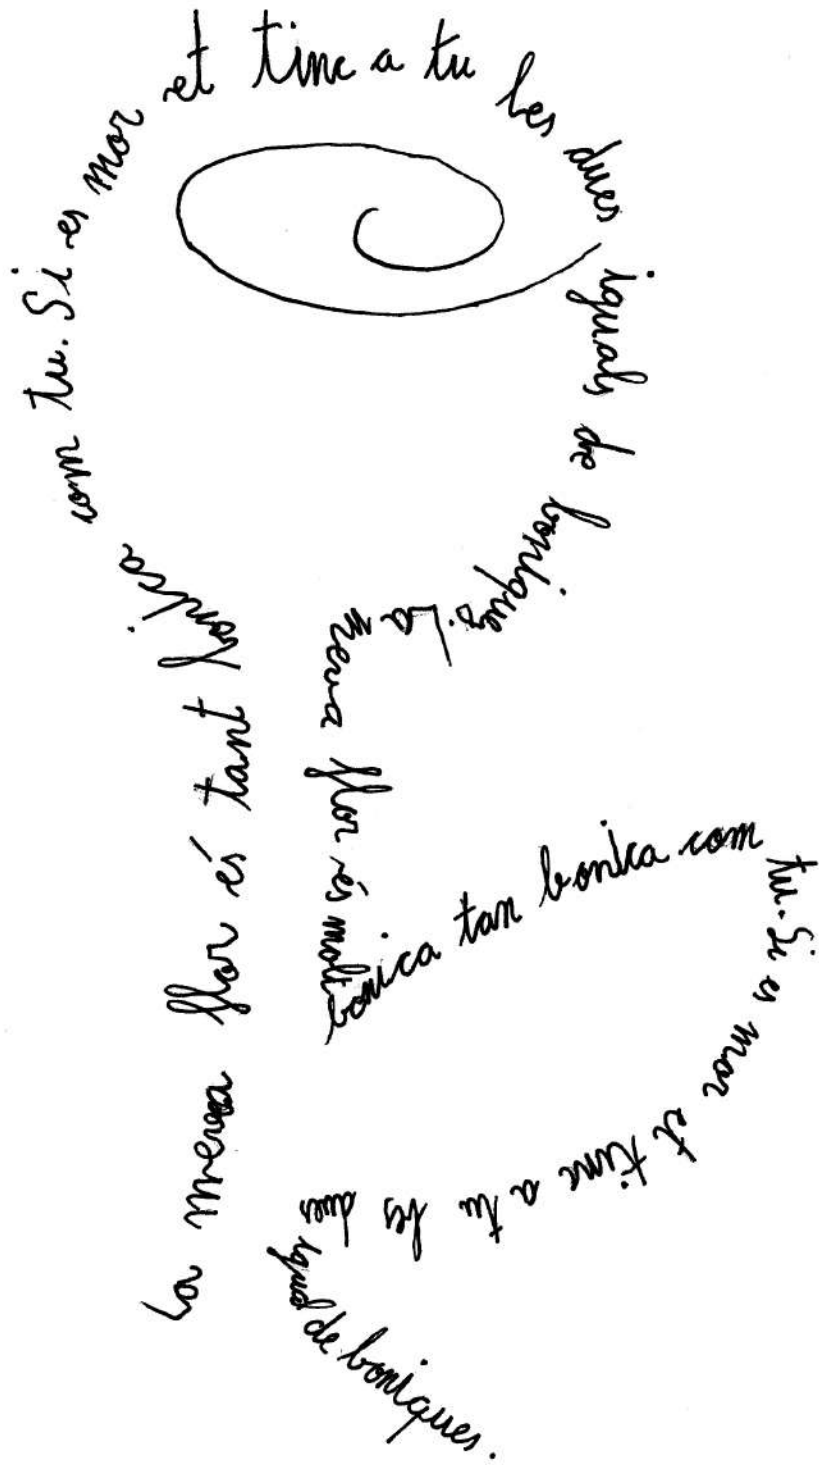 La meva flor és tant bonica com tu. Si es mor et tinc a tu les dues iguals de boniques. La meva flor és molt bonica tan bonica com tu. Si es mor et tinc a tu les dues iguals de boniques.